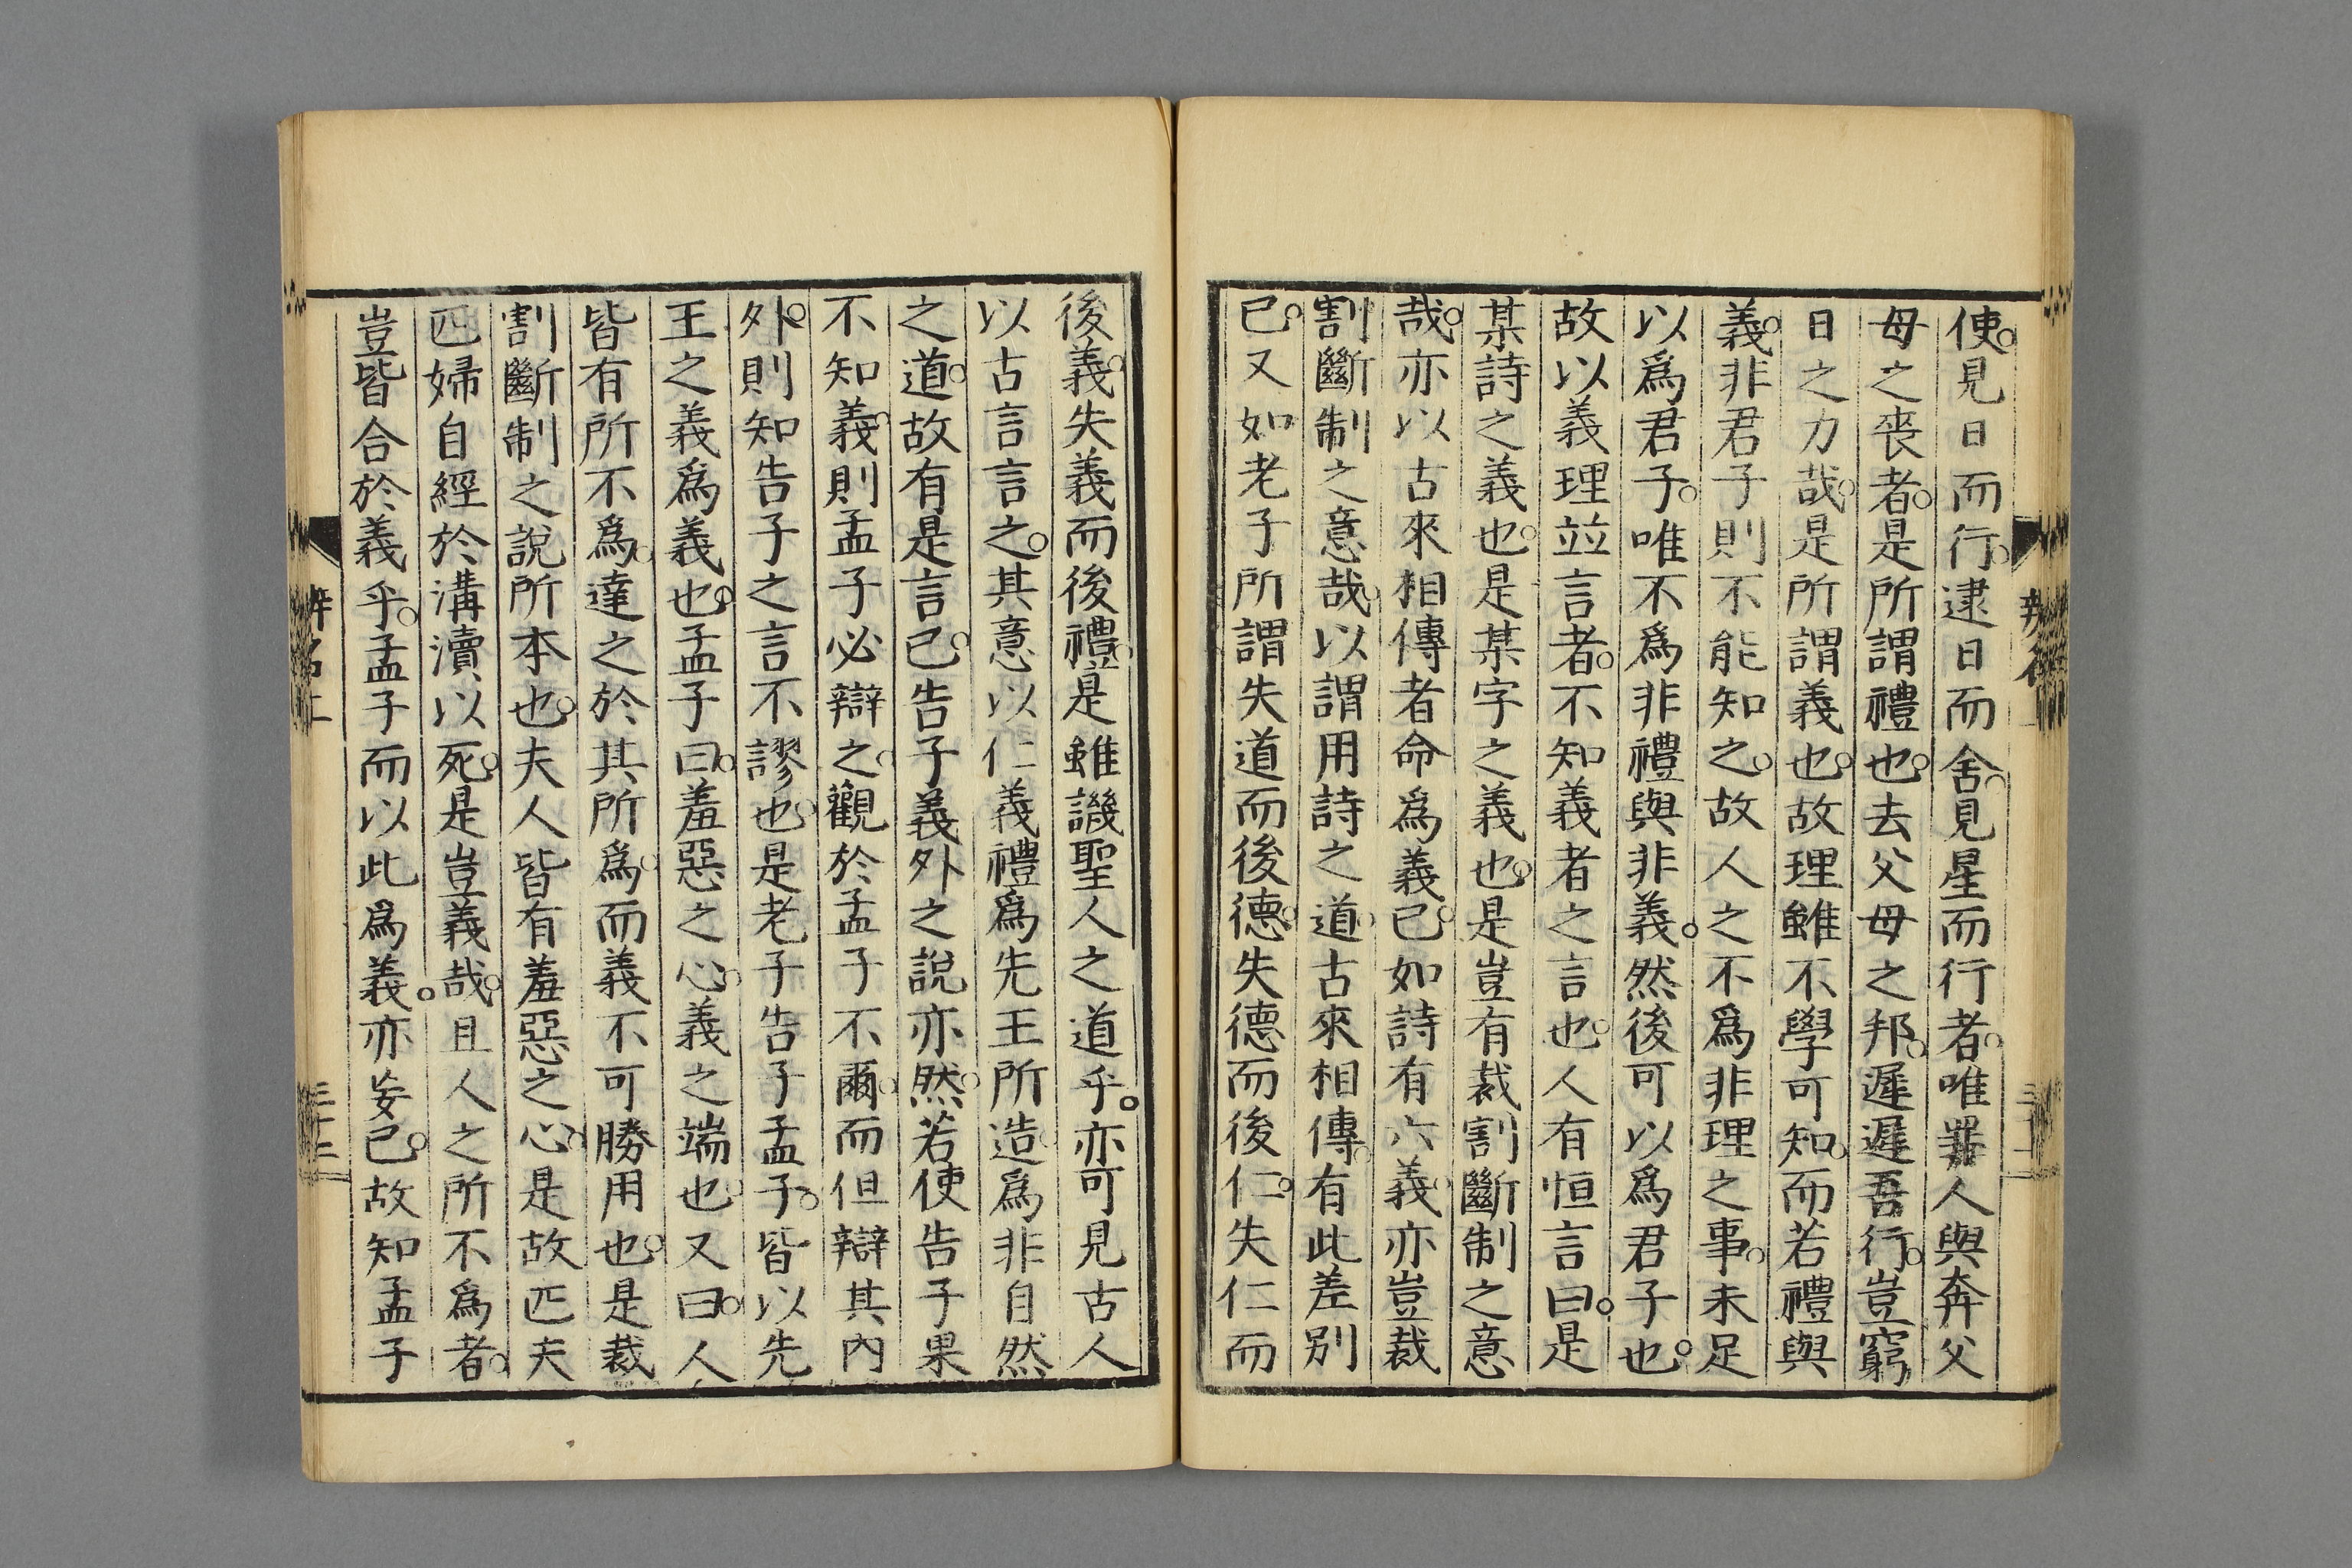 使。見日而行。逮日而舍。見星而行者。唯罪人與奔父
母之喪者。是所謂禮也。去父母之邦。遲遲吾行。豈窮
日之力哉。是所謂義也。故理雖不學可知。而若禮與
義。非君子則不能知之。故人之不爲非理之事。未足
以爲君子。唯不爲非禮與非義。然後可以爲君子也。
故以義理竝言者。不知義者之言也。人有恒言曰。是
某詩之義也。是某字之義也。是豈有裁割斷制之意
哉。亦以古來相傳者命爲義已。如詩有六義。亦豈裁
割斷制之意哉。以謂用詩之道。古來相傳。有此差別
已。又如老子所謂失道而後德。失德而後仁。失仁而
後義。失義而後禮。是雖譏聖人之道乎。亦可見古人
以古言言之。其意以仁義禮爲先王所造。爲非自然
之道。故有是言已。告子義外之說亦然。若使告子果
不知義。則孟子必辯之。觀於孟子不爾。而但辯其內
外。則知告子之言不謬也。是老子告子孟子。皆以先
王之義爲義也。孟子曰。羞惡之心。義之端也。又曰。人
皆有所不爲。達之於其所爲。而義不可勝用也。是裁
割斷制之說所本也。夫人皆有羞惡之心。是故匹夫
匹婦自經於溝瀆以死。是豈義哉。且人之所不爲者。
豈皆合於義乎。孟子而以此爲義。亦妄已。故知孟子
辨名上
三十三